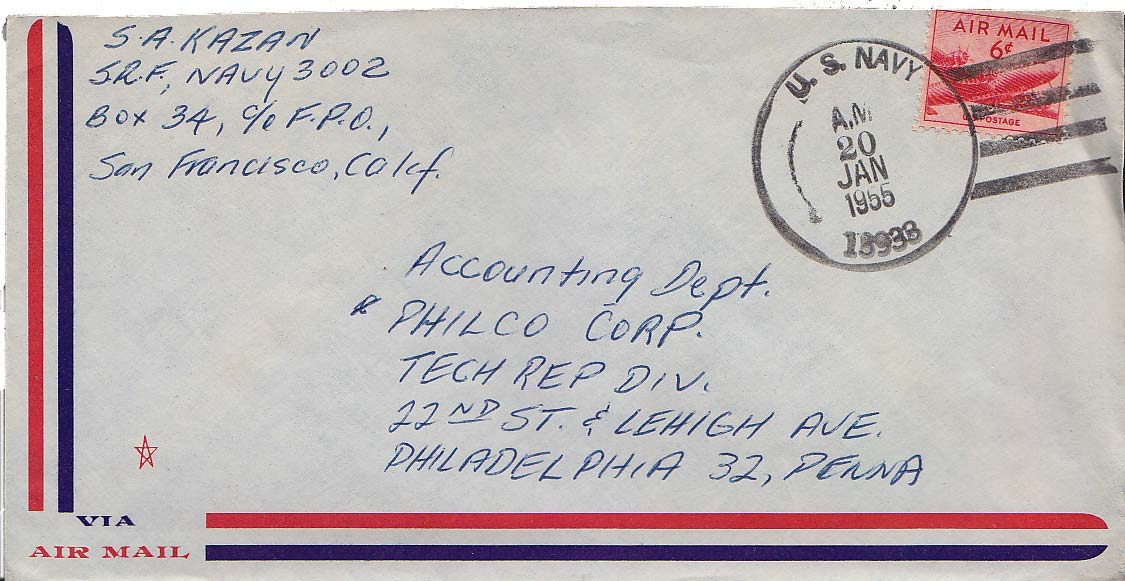 S.A. KAZAN
S.R.F., NAVY 3002
BOX 34, c/o F.P.O.,
San Francisco, Calif.
AIR MAIL
6¢
U.S. POSTAGE
U. S. NAVY
A.M
20
JAN
1955
Accounting Dept.
PHILCO CORP.
TECH REP DIV.
22ND ST. & LEHIGH AVE.
PHILADELPHIA 32, PENNA
VIA
AIR MAIL